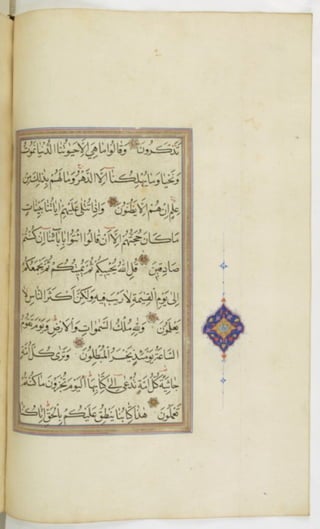 تذكرون وقالوا ما هي الا حيوتنا الدنيا نموت
ونحيا وما يهلكنا الا الدهر وما لهم بذلك من
علم ان هم الا يظنون واذا تتلى عليهم اياتنا بينات
ما كان حجتهم الا ان قالوا ائتوا بابائنا ان كنتم
صادقين قل الله يحييكم ثم يميتكم ثم يجمعكم
الى يوم القيمة لا ريب فيه ولكن اكثر الناس لا
يعلمون ولله ملك السموات والارض ويوم تقوم
الساعة يومئذ يخسر المبطلون وترى كل امة
جاثية كل امة تدعى الى كتابها اليوم تجزون ما كنتم
تعملون هذا كتابنا ينطق عليكم بالحق انا كنا